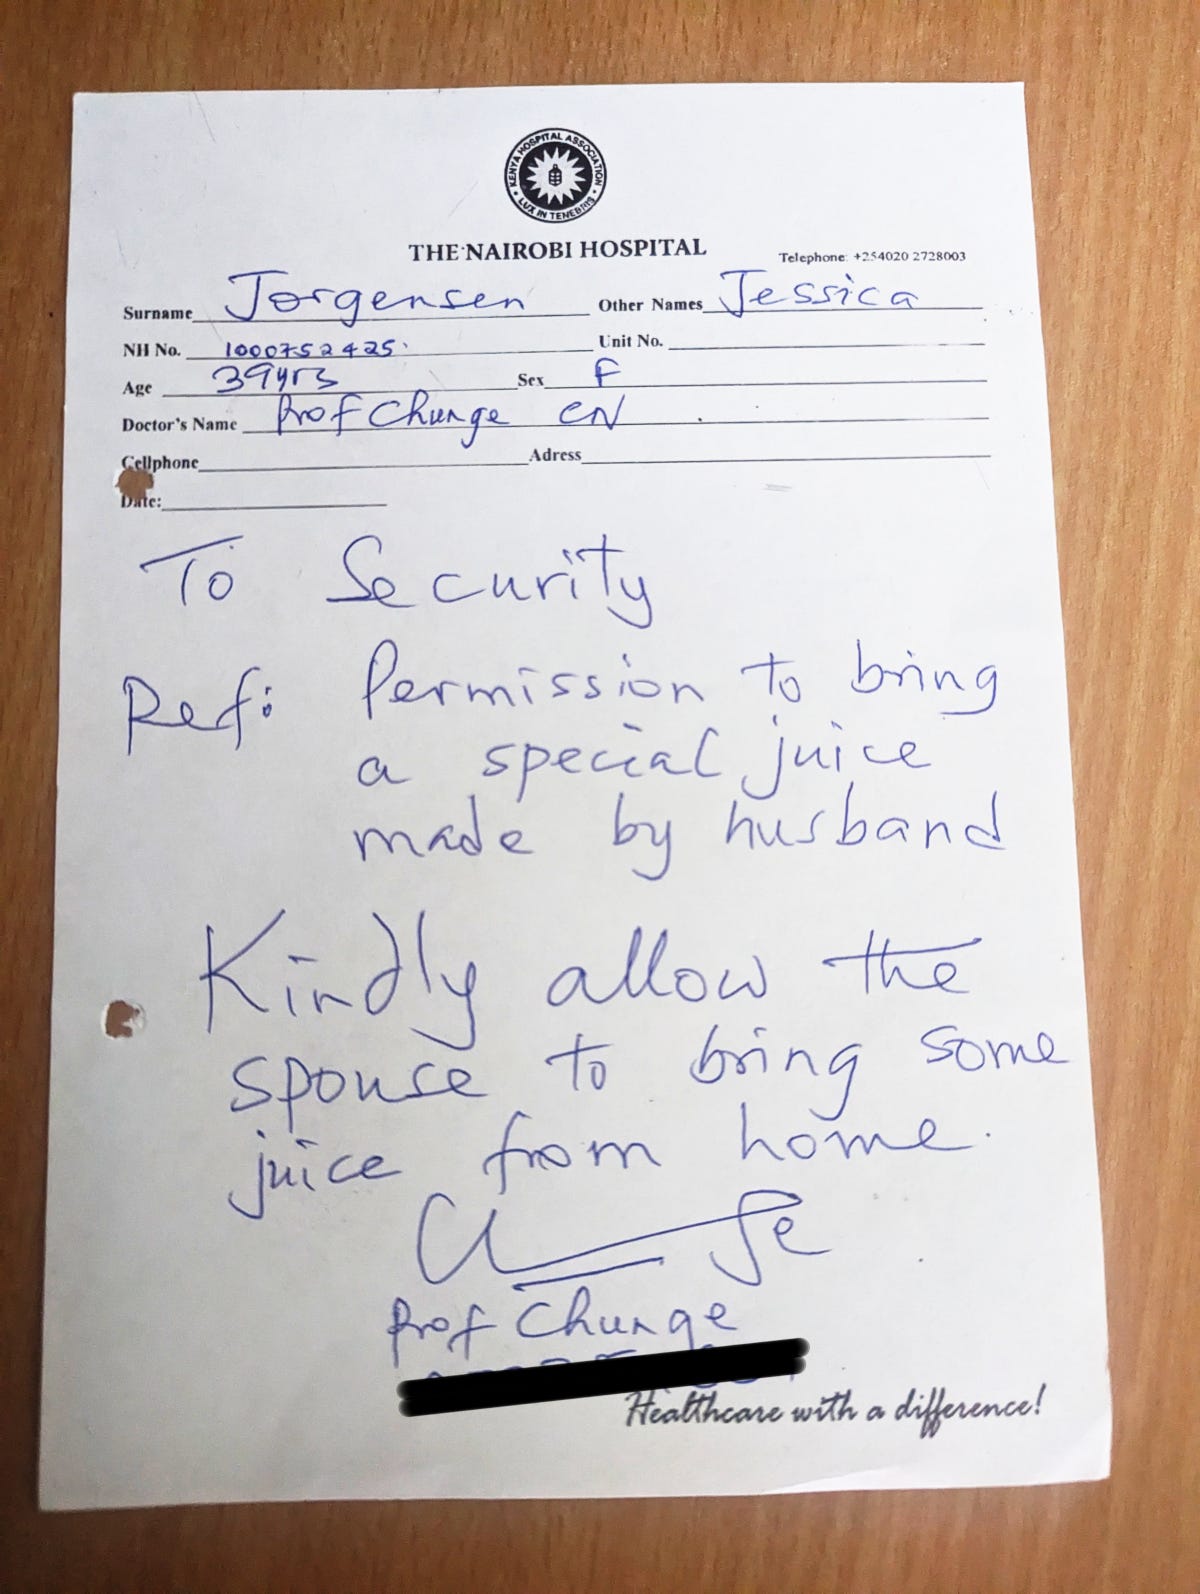 KENYA HOSPITAL ASSOCIATION
LUX IN TENEBRIS
THE NAIROBI HOSPITAL
Telephone: +254020 2728003
Surname Jorgensen Other Names Jessica
NH No. 1000752425 Unit No.
Age 39yrs Sex F
Doctor's Name Prof Chunge CN
Cellphone Adress
Date:
To Security
Ref: Permission to bring
a special juice
made by husband
Kindly allow the
spouse to bring some
juice from home.
Prof Chunge
Healthcare with a difference!